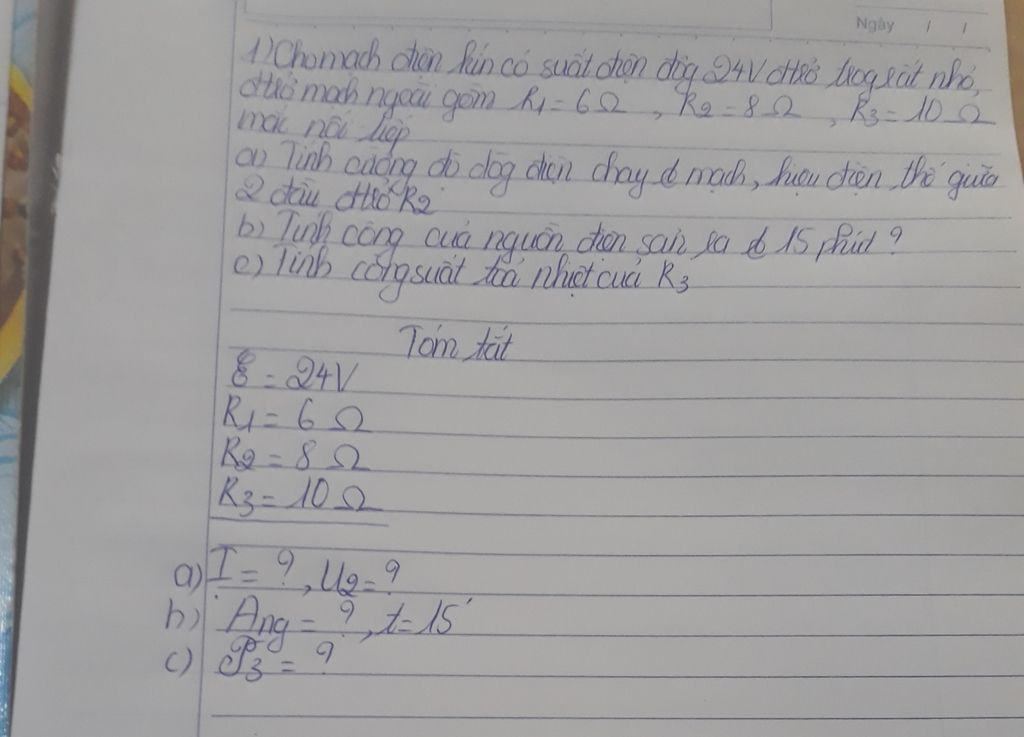 Ngày / /
1) Cho mạch điện kín có suất điện độg 24V đtrở trog rất nhỏ,
đtrở mạch ngoài gồm R1 = 6 Ω , R2 = 8 Ω , R3 = 10 Ω
mắc nối tiếp
a) Tính cường độ dòg điện chạy mạch, hiệu điện thế giữa
2 đầu đtrở R2
b) Tính công của nguồn điện sản ra 15 phút ?
c) Tính côg suất toả nhiệt của R3
Tóm tắt
ℰ = 24V
R1 = 6 Ω
R2 = 8 Ω
R3 = 10 Ω
a) I = ? , U2 = ?
b) Ang = ? , t = 15'
c) P3 = ?